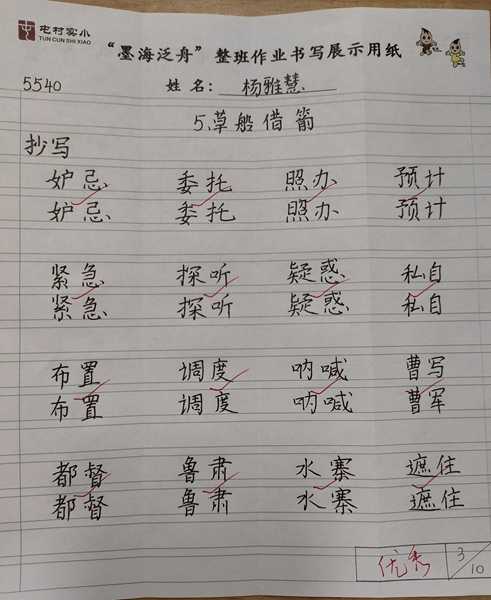 屯村实小
TUN CUN SHI XIAO
“墨海泛舟”整班作业书写展示用纸
5540 姓名：杨雅慧
5、草船借箭
抄写
妒忌 委托 照办 预计
妒忌 委托 照办 预计
紧急 探听 疑惑 私自
紧急 探听 疑惑 私自
布置 调度 呐喊 曹写
布置 调度 呐喊 曹军
都督 鲁肃 水寨 遮住
都督 鲁肃 水寨 遮住
优秀 3/10